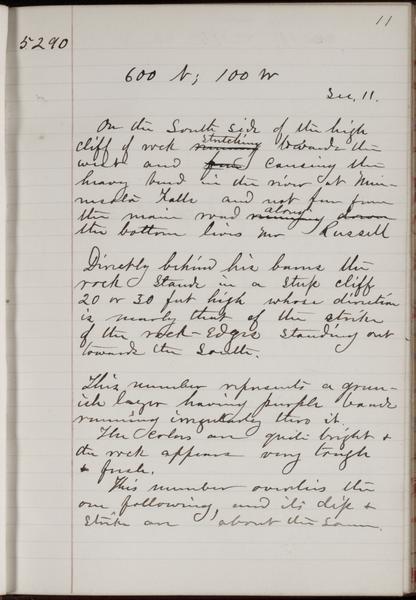 11
5290
600 N; 100 W
Sec. 11.
On the South Side of the high
cliff of rock running Stretching towards the
west and causing the
heavy bend in the river at Min-
nesota Falls and not far from
the main road running along down
the bottom lives Mr Russell
Directly behind his barns the
rock stands in a steep cliff
20 or 30 feet high whose direction
is nearly that of the strike
of the rock - Edges standing out
towards the South.
This number represents a green-
ish layer having purple bands
running irregularly thro it.
The colors are quite bright &
the rock appears very tough
& fresh.
This number overlies the
one following, and its dip &
strike are about the same.